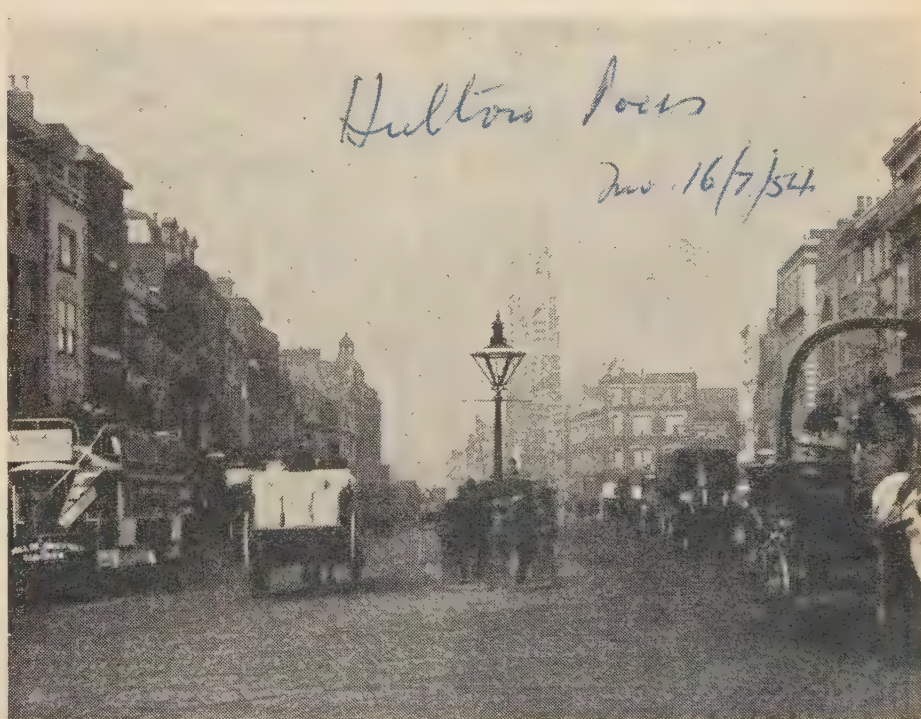 Hulton Press
16/7/54